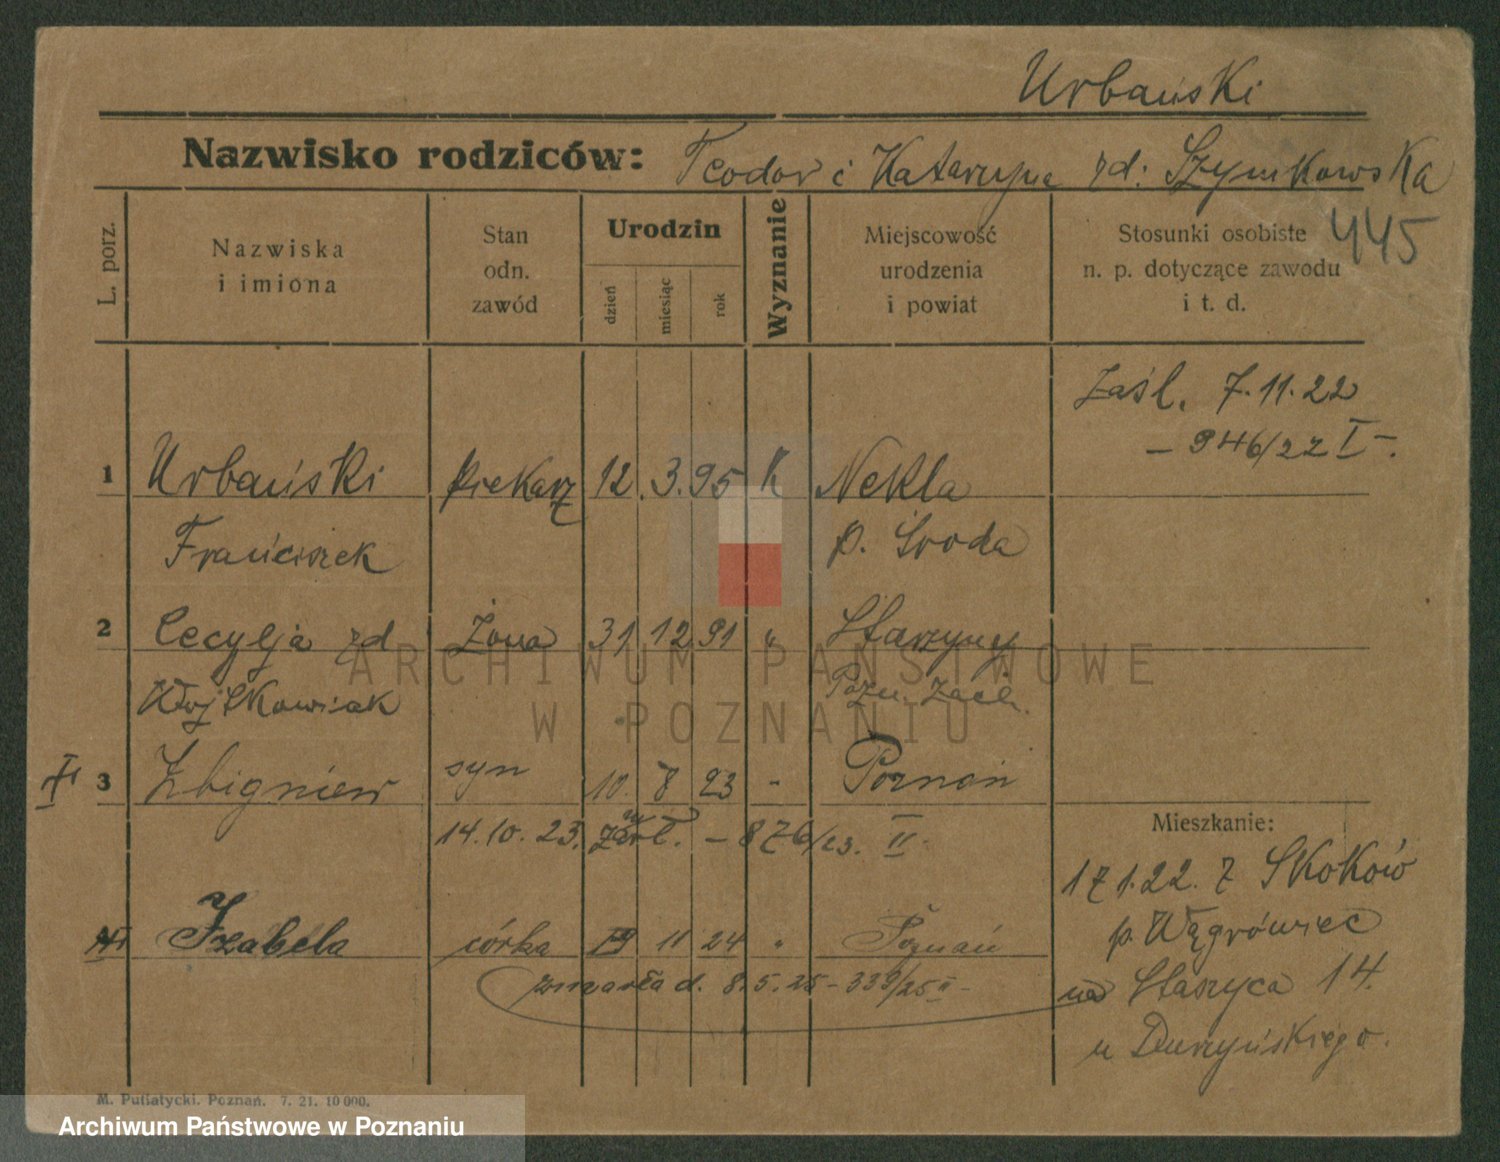 Urbański
Nazwisko rodziców: Teodor i Katarzyna zd: Szymkowska
445
L. porz.
Nazwiska
i imiona
Stan
odn.
zawód
Urodzin
dzień
miesiąc
rok
Wyznanie
Miejscowość
urodzenia
i powiat
Stosunki osobiste
n. p. dotyczące zawodu
i t. d.
Zaśl. 7.11.22
– 946/22 I –.
1 Urbański piekarz 12. 3. 95 k Nekla
Franciszek p. Środa
2 Cecylja zd żona 31 12 91 " Starzyny
Wojtkowiak Pozn. Zach.
3 Zbigniew syn 10. 8 23 - Poznań
14.10.23. zmarł. – 876/23. II.
Mieszkanie:
17.1.22. z Skoków
p. Wągrówiec
na Staszyca 14.
u Duszyńskiego.
Izabela córka 19 11 24 " Poznań
zmarła d. 8.5.25 – 339/25 II –
M. Putiatycki. Poznań. 7. 21. 10 000.
ARCHIWUM PAŃSTWOWE
W POZNANIU
Archiwum Państwowe w Poznaniu